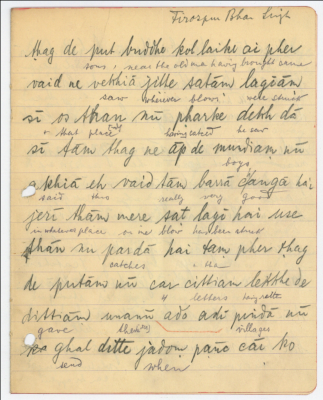 Firozpur Bhan Singh
ṭhag de put buddhe kol laike ai pher
sons, near the old man having brought came
vaid ne vekhiā jitte satām lagiām
saw wherever blows were struck
sī os than nū pharke dekh dā
that place having seized he saw
sī tām ṭhag ne āp de mundiām nū
boys
ākhiā eh vaid tām barrā canga hai
said this really very good
jeri thām mere sat lagī hai use
in whatever place on me blow has been struck
thān nu pardā hai tam pher ṭhag
catches
de putām nū car cittiam lekkhe de
letters
dittiām unanū ado adī pindā nū
gave them villages
ghal ditte jadom panc cai ko
send when